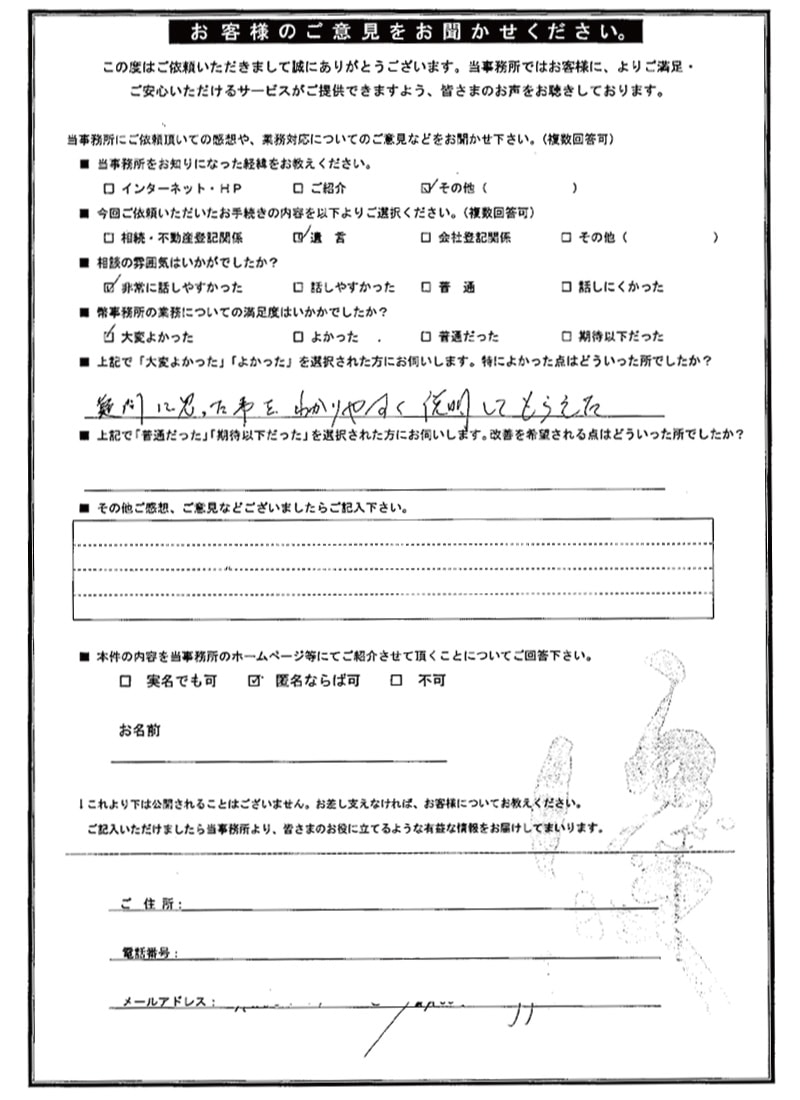 お客様のご意見をお聞かせください。
この度はご依頼いただきまして誠にありがとうございます。当事務所ではお客様に、よりご満足・
ご安心いただけるサービスがご提供できますよう、皆さまのお声をお聴きしております。
当事務所にご依頼頂いての感想や、業務対応についてのご意見などをお聞かせ下さい。（複数回答可）
■ 当事務所をお知りになった経緯をお教えください。
□ インターネット・HP □ ご紹介 ☑ その他（ ）
■ 今回ご依頼いただいたお手続きの内容を以下よりご選択ください。（複数回答可）
□ 相続・不動産登記関係 ☑ 遺 言 □ 会社登記関係 □ その他（ ）
■ 相談の雰囲気はいかがでしたか？
☑ 非常に話しやすかった □ 話しやすかった □ 普 通 □ 話しにくかった
■ 幣事務所の業務についての満足度はいかかでしたか？
☑ 大変よかった □ よかった □ 普通だった □ 期待以下だった
■ 上記で「大変よかった」「よかった」を選択された方にお伺いします。特によかった点はどういった所でしたか？
疑問に思った事を わかりやすく 説明して もらえた
■ 上記で「普通だった」「期待以下だった」を選択された方にお伺いします。改善を希望される点はどういった所でしたか？
■ その他ご感想、ご意見などございましたらご記入下さい。
■ 本件の内容を当事務所のホームページ等にてご紹介させて頂くことについてご回答下さい。
□ 実名でも可 ☑ 匿名ならば可 □ 不可
お名前
↓これより下は公開されることはございません。お差し支えなければ、お客様についてお教えください。
ご記入いただけましたら当事務所より、皆さまのお役に立てるような有益な情報をお届けしてまいります。
ご 住 所：
電話番号：
メールアドレス：